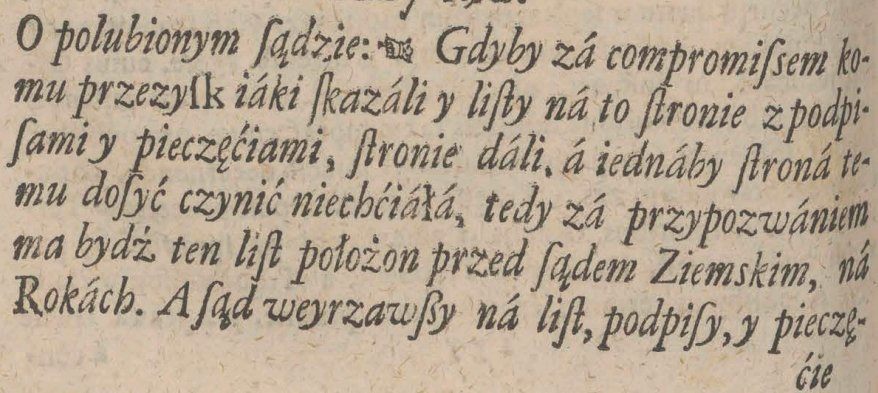 O polubionym ſądzie: ☙ Gdyby zá compromiſsem ko-
mu przezyſk iáki ſkazáli y liſty ná to ſtronie z podpi-
ſami y pieczęćiami, ſtronie dáli, á iednáby ſtroná te-
mu doſyć czynić niechćiáłá, tedy zá przypozwániem
ma bydź ten liſt położon przed ſądem Ziemskim, ná
Rokách. A ſąd weyrzawſzy ná liſt, podpiſy, y pieczę-
ćie